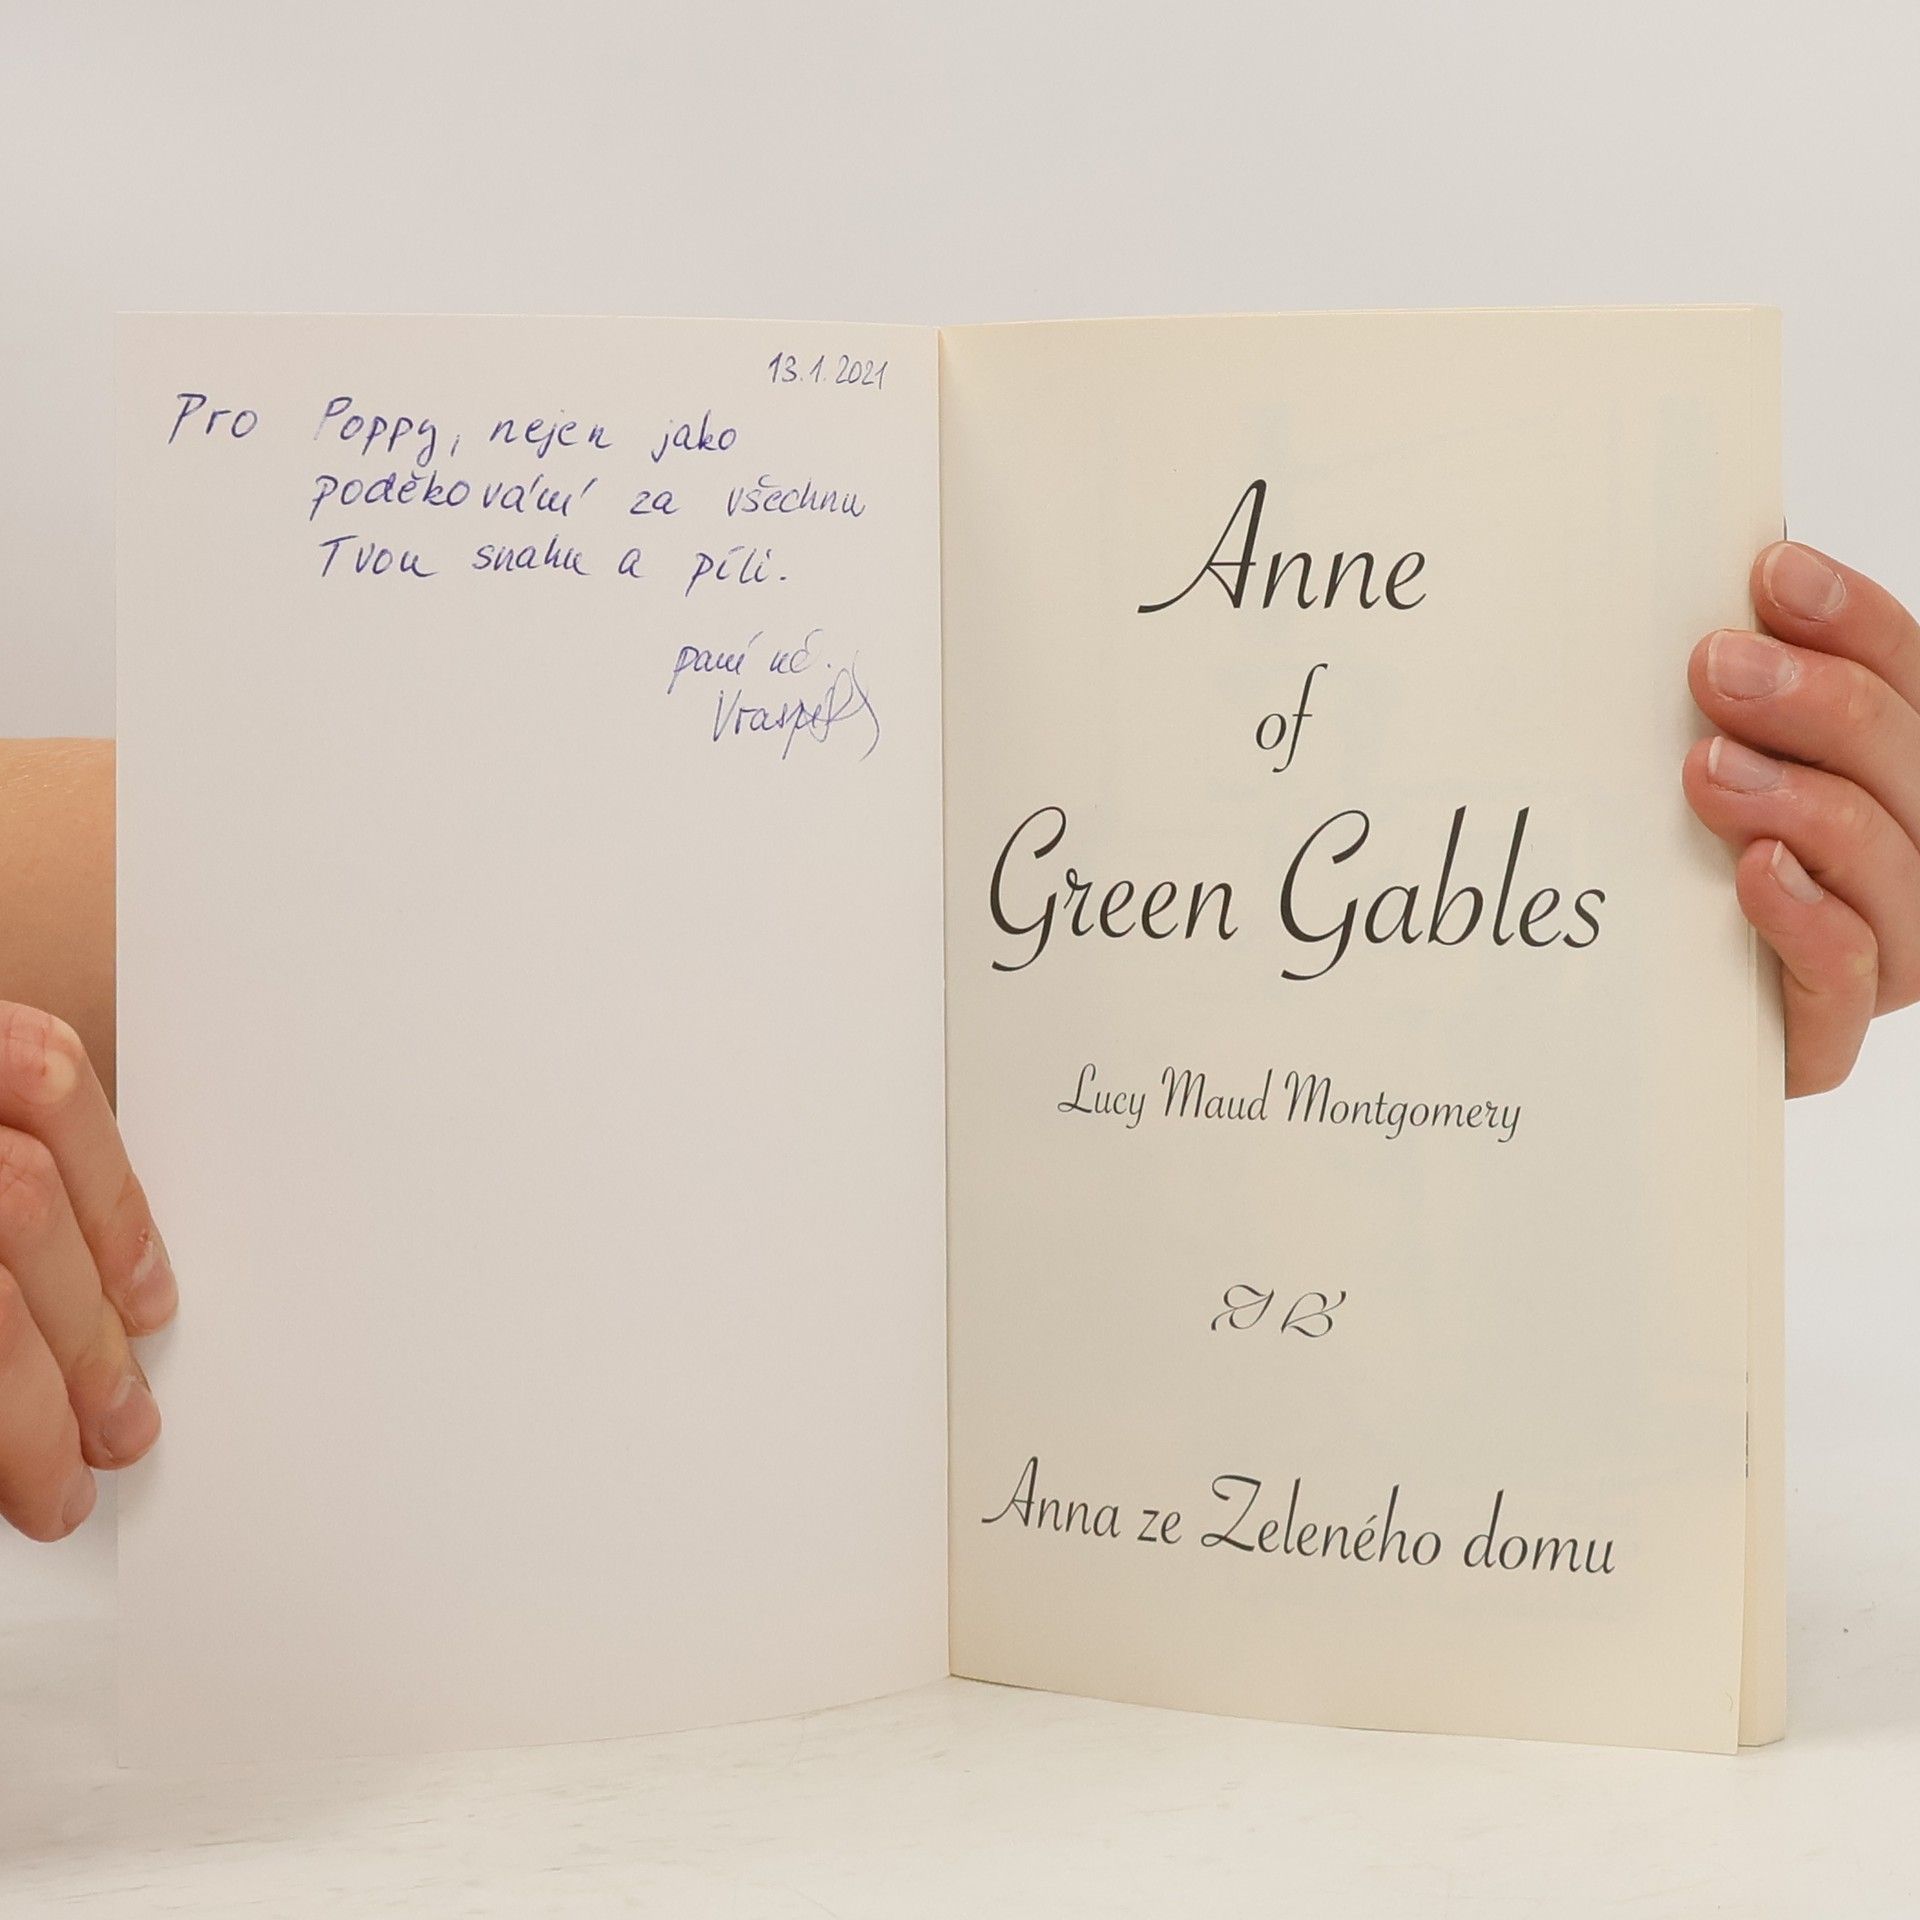 13.1.2021
Pro Poppy, nejen jako
poděkování za všechnu
Tvou snahu a píli.
paní uč.
Anne
of
Green Gables
Lucy Maud Montgomery
Anna ze Zeleného domu